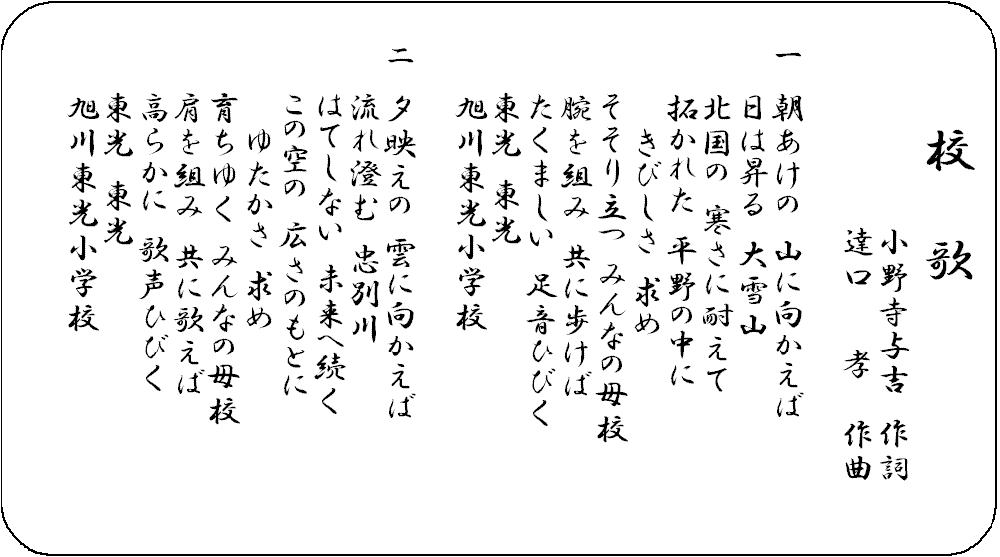 校歌
小野寺与吉 作詞
達口 孝 作曲
一
朝あけの 山に向かえば
日は昇る 大雪山
北国の 寒さに耐えて
拓かれた 平野の中に
きびしさ 求め
そそり立つ みんなの母校
腕を組み 共に歩けば
たくましい 足音ひびく
東光 東光
旭川東光小学校
二
夕映えの 雲に向かえば
流れ澄む 忠別川
はてしない 未来へ続く
この空の 広さのもとに
ゆたかさ 求め
育ちゆく みんなの母校
肩を組み 共に歌えば
高らかに 歌声ひびく
東光 東光
旭川東光小学校